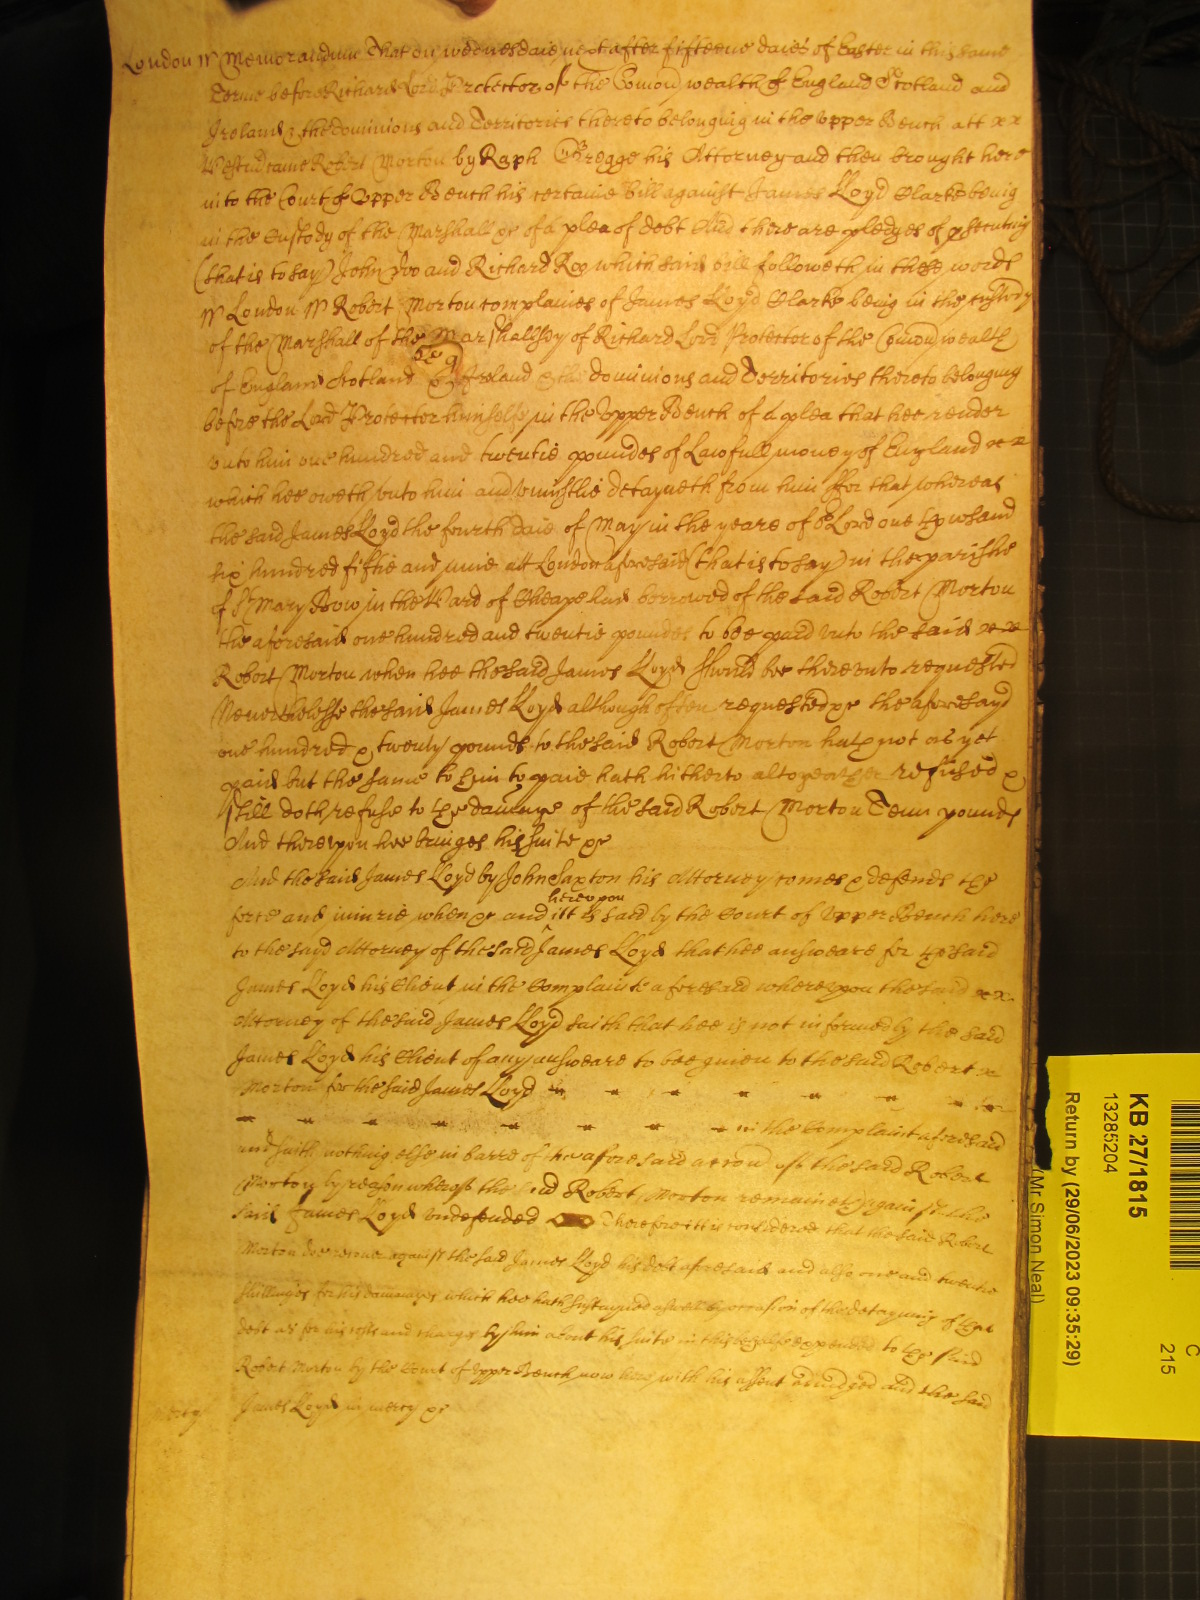 London ss Memorandum That on wednesdaie next after fifteene daies of Easter in this same
Terme before Richard Lord Protector of the Comon wealth of England Scotland and
Ireland & the dominions and Territories thereto belonging in the upper Bench att x x
Westm came Robert Morton by Raph Gregge his Attorney and then brought here
into the Court of Upper Bench his certaine Bill against James Lloyd Clarke being
in the Custody of the Marshall &c of a plea of debt And there are pledges of prosecuting
(that is to say) John Doo and Richard Roo which said bill followeth in these words
ss London ss Robert Morton complaines of James Lloyd Clarke being in the custody
of the Marshall of the Marshallsey of Richard Lord Protector of the Comon wealth
of England Scotland & Ireland & the dominions and Territories thereto belonging
before the Lord Protector himselfe in the Upper Bench of a plea that hee render
unto him one hundred and twentie poundes of Lawfull money of England x x
which hee oweth unto him and uniustlie detayneth from him ffor that whereas
the said James Lloyd the fourth daie of May in the yeare of or Lord one thousand
six hundred fiftie and nine att London aforesaid (that is to say) in the parishe
of St Mary Bow in the Ward of Cheape had borrowed of the said Robert Morton
the aforesaid one hundred and twentie poundes to bee paid unto the said x x
Robert Morton when hee the said James Lloyd should bee thereunto requested
Neverthelesse the said James Lloyd although often requested &c the aforesayd
one hundred & twenty pounds to the said Robert Morton hath not as yet
paid but the same to him to paie hath hitherto altogeather refused &
still doth refuse to the damage of the said Robert Morton Tenn pounds
And thereupon hee bringes his suite &c
And the said James Lloyd by John Saxton his Attorney comes & defends the
force and iniurie when &c and hereupon itt is said by the Court of Upper Bench here
to the sayd Attorney of the said James Lloyd that hee answeare for the said
James Lloyd his Client in the Complaint aforesaid whereupon the said x x
Attorney of the said James Lloyd saith that hee is not informed by the said
James Lloyd his Client of any answeare to bee given to the said Robert x
Morton for the said James Lloyd
in the Complaint aforesaid
and saith nothing else in barre of the aforesaid accon of the said Robert
Morton by reason whereof the said Robert Morton remaineth against the
said James Lloyd undefended Therefore itt is considered that the said Robert
Morton doe recover against the said James Lloyd his debt aforesaid and also one and twentie
shillinges for his dammages which hee hath susteyned aswell by occasion of the detayning of that
debt as for his costs and charges by him about his suite in this behalfe expended to the said
Robert Morton by the Court of Upper Bench now here with his assent adiudged and the said
James Lloyd in mercy &c
mercy
KB 27/1815
13285204
Return by (29/06/2023 09:35:29)
(Mr Simon Neal)
C
215